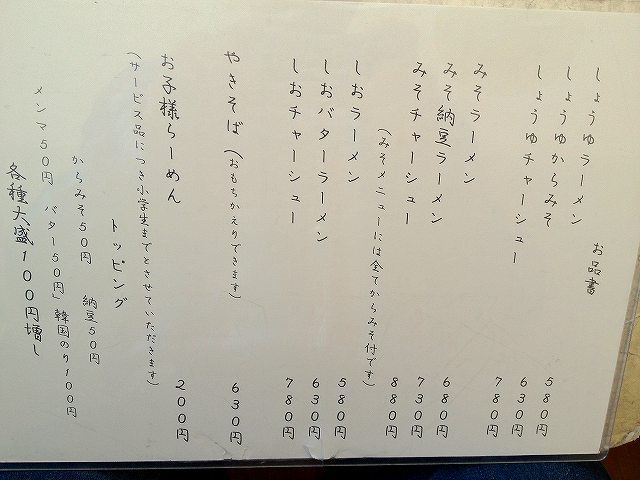 お品書
しょうゆラーメン 580円
しょうゆからみそ 630円
しょうゆチャーシュー 780円
みそラーメン 680円
みそ納豆ラーメン 730円
みそチャーシュー 880円
(みそメニューには全てからみそ付です)
しおラーメン 580円
しおバターラーメン 630円
しおチャーシュー 780円
やきそば(おもちかえりできます) 630円
お子様らーめん 200円
(サービス品につき小学生までとさせていただきます)
トッピング
からみそ50円 納豆50円
メンマ50円 バター50円 韓国のり100円
各種大盛100円増し